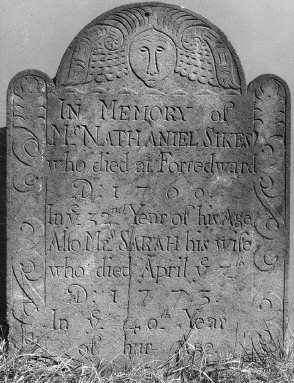 In Memory of
Mr. NATHANIEL SIKES
who died at Fortedward
D: 1760.
In ye 32nd Year of his Age
Also Mrs. SARAH his wife
who died April ye 7th
D: 1773.
In ye 40th Year
of hur Age